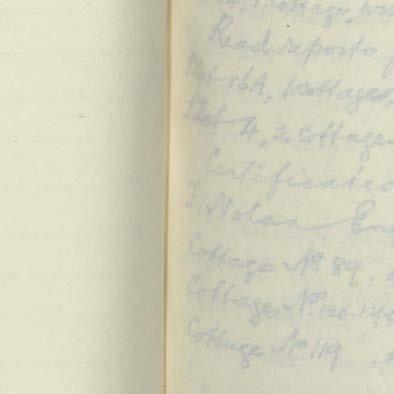 1 Cottage, wor
Read reports
Plot 16A, 1 Cottages,
Plot 4, 2 Cottage
Certificates
J. Nolan, Eng
Cottage No. 89,
Cottages No. 120.121.
Cottage No. 119,